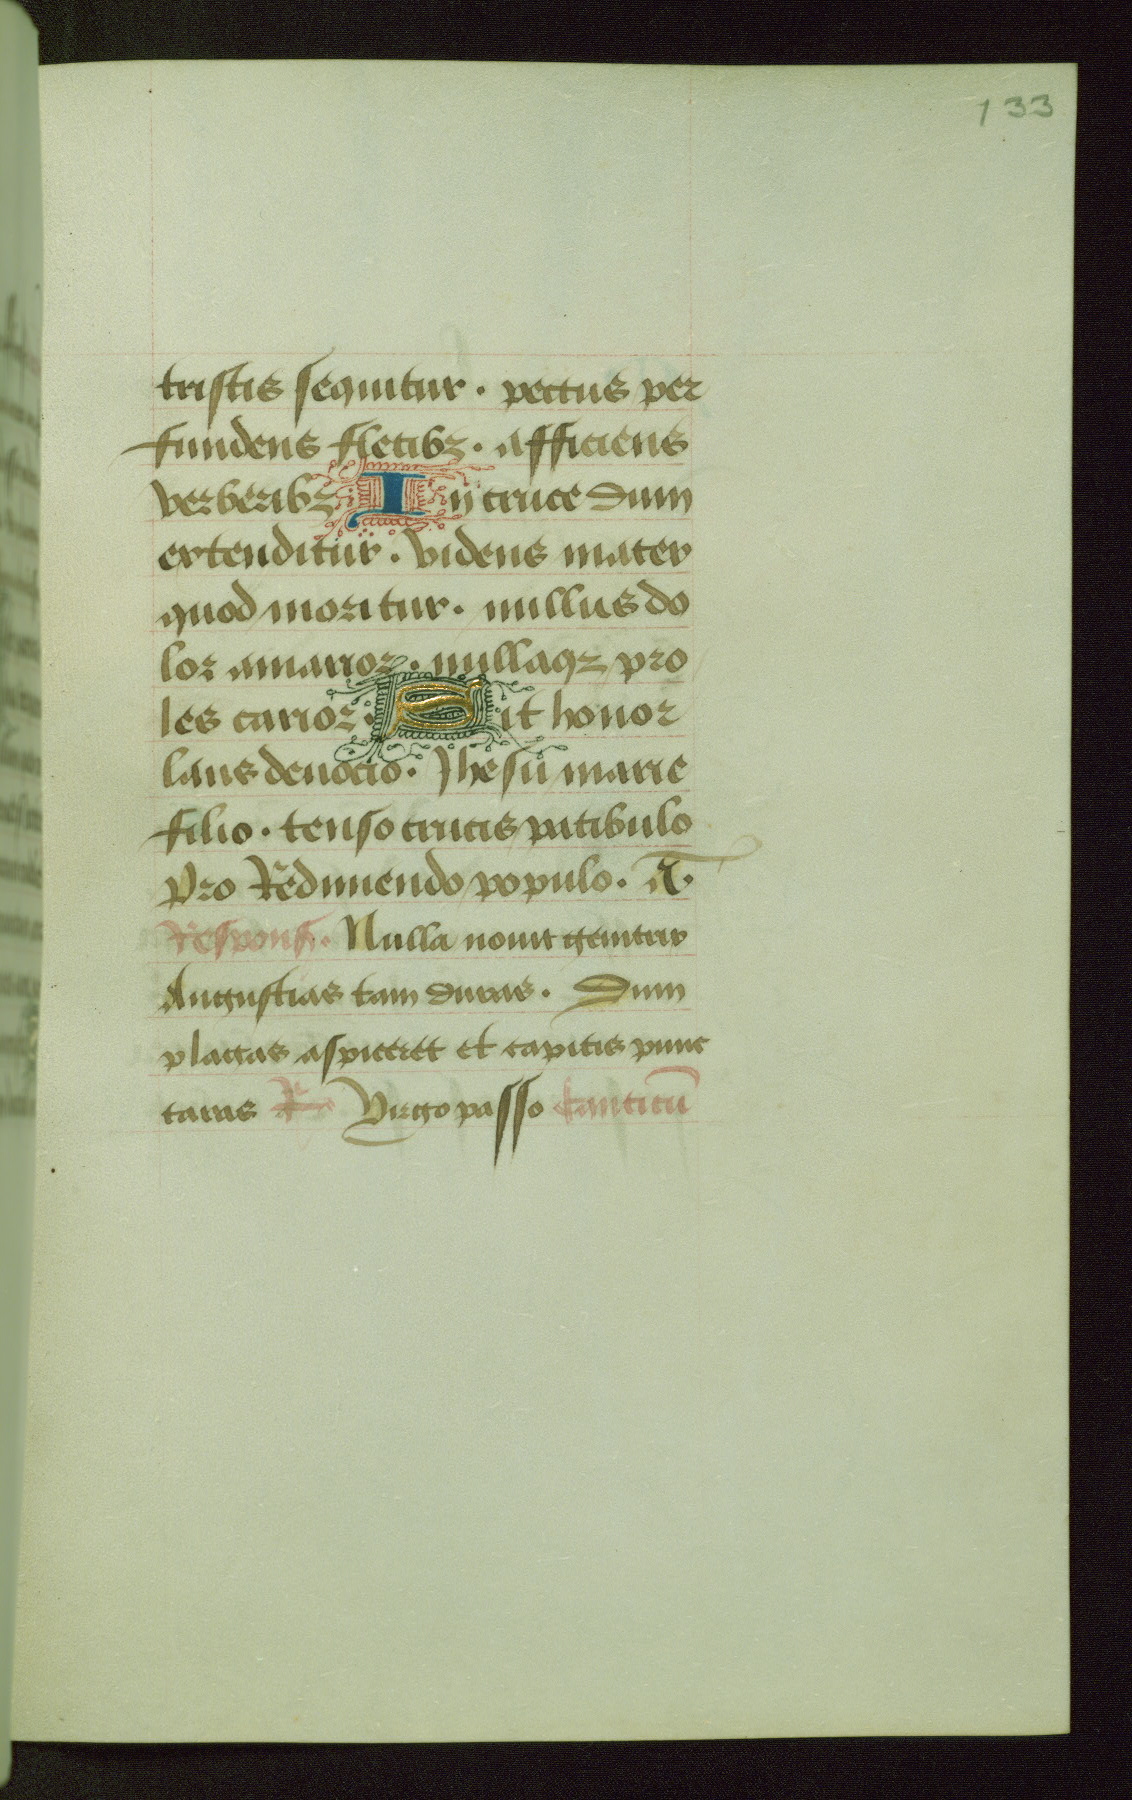 133
tristis sequitur · pectus per
fundens fletibꝫ · afficiens
verberibꝫ · In cruce dum
extenditur · videns mater
quod moritur · nullus do
lor amarior · nullaqꝫ pro
les carior · Sit honor
laus deuocio · Jhesu marie
filio · tenso crucis patibulo
pro Redimendo populo · A·
Respons· Nulla nouit genitrix
Angustias tam duras · Dum
plagas aspiceret et capitis punc
turas R Virgo passo Canticū